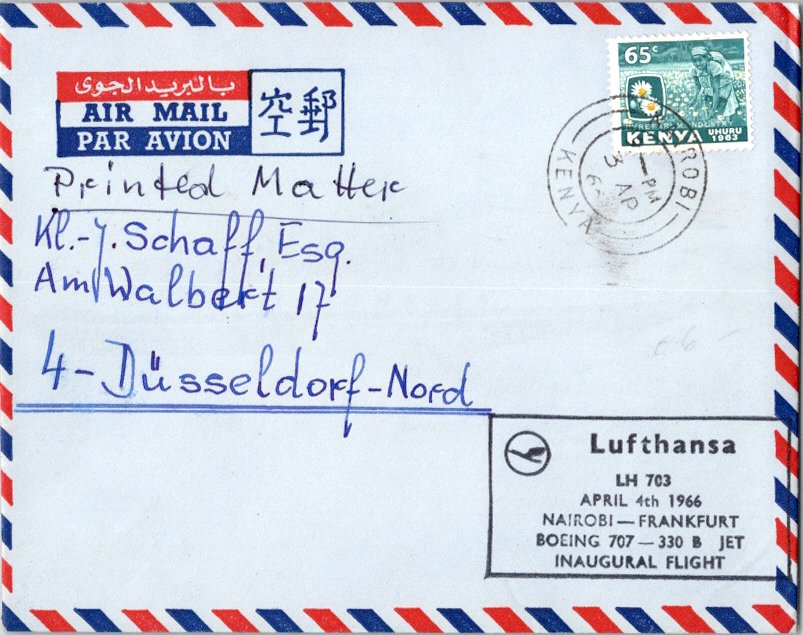 65c
PYRETHRUM INDUSTRY
KENYA UHURU 1963
NAIROBI
KENYA
PM
3 AP
بالبريد الجوى
AIR MAIL
PAR AVION
空郵
Printed Matter
Kl.-J. Schaff, Esq.
Am Walbert 17
4-Düsseldorf-Nord
Lufthansa
LH 703
APRIL 4th 1966
NAIROBI — FRANKFURT
BOEING 707 — 330 B JET
INAUGURAL FLIGHT